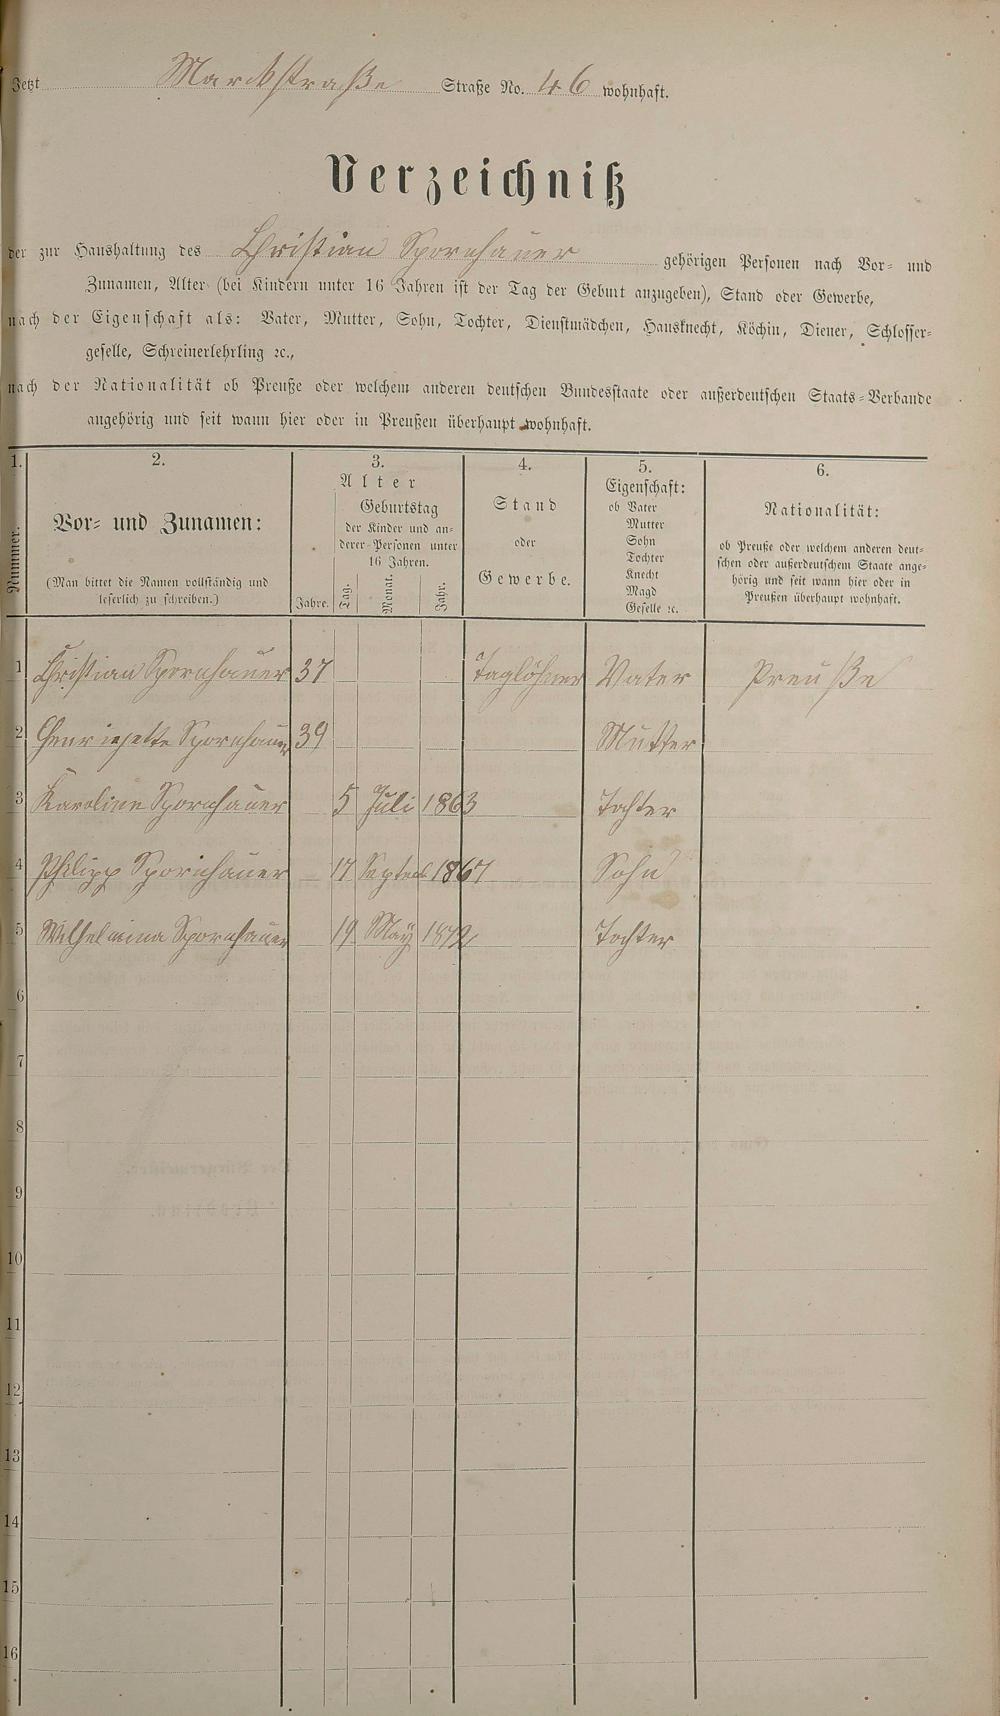 Jetzt Marcktstraße Straße No. 46 wohnhaft.
Verzeichniß
der zur Haushaltung des Christian Spornhauer gehörigen Personen nach Vor- und
Zunamen, Alter (bei Kindern unter 16 Jahren ist der Tag der Geburt anzugeben), Stand oder Gewerbe,
nach der Eigenschaft als: Vater, Mutter, Sohn, Tochter, Dienstmädchen, Hausknecht, Köchin, Diener, Schlosser-
geselle, Schreinerlehrling ꝛc.,
nach der Nationalität ob Preuße oder welchem anderen deutschen Bundesstaate oder außerdeutschen Staats-Verbande
angehörig und seit wann hier oder in Preußen überhaupt wohnhaft.
1. 2. 3. 4. 5. 6.
Nummer.
Vor- und Zunamen:
(Man bittet die Namen vollständig und
leserlich zu schreiben.)
Alter
Jahre.
Geburtstag
der Kinder und an-
derer Personen unter
16 Jahren.
Tag. Monat. Jahr.
Stand
oder
Gewerbe.
Eigenschaft:
ob Vater
Mutter
Sohn
Tochter
Knecht
Magd
Geselle ꝛc.
Nationalität:
ob Preuße oder welchem anderen deut-
schen oder außerdeutschem Staate ange-
hörig und seit wann hier oder in
Preußen überhaupt wohnhaft.
1 Christian Spornhauer 37 Taglöhner Vater Preuße
2 Spornhauer 39 Mutter
3 Karoline Spornhauer 5 Juli 1863 Tochter
4 Philipp Spornhauer 17 Septeb 1867 Sohn
5 Wilhelmina Spornhauer 19 May 1872 Tochter
6
7
8
9
10
11
12
13
14
15
16